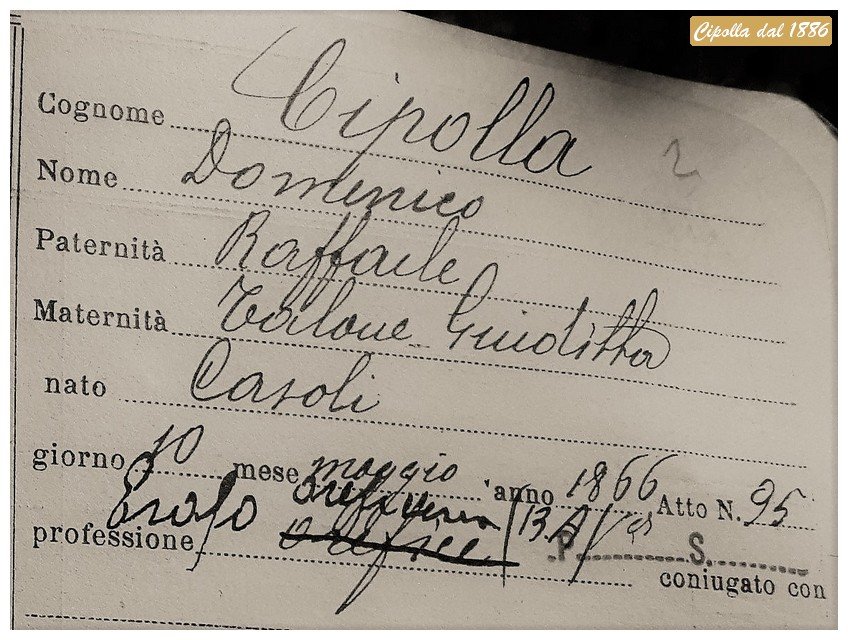 Cipolla dal 1886
Cognome Cipolla
Nome Domenico
Paternità Raffaele
Maternità Talone Giuditta
nato Casoli
giorno 10 mese maggio anno 1866 Atto N. 95
professione orefice P. S.
coniugato con